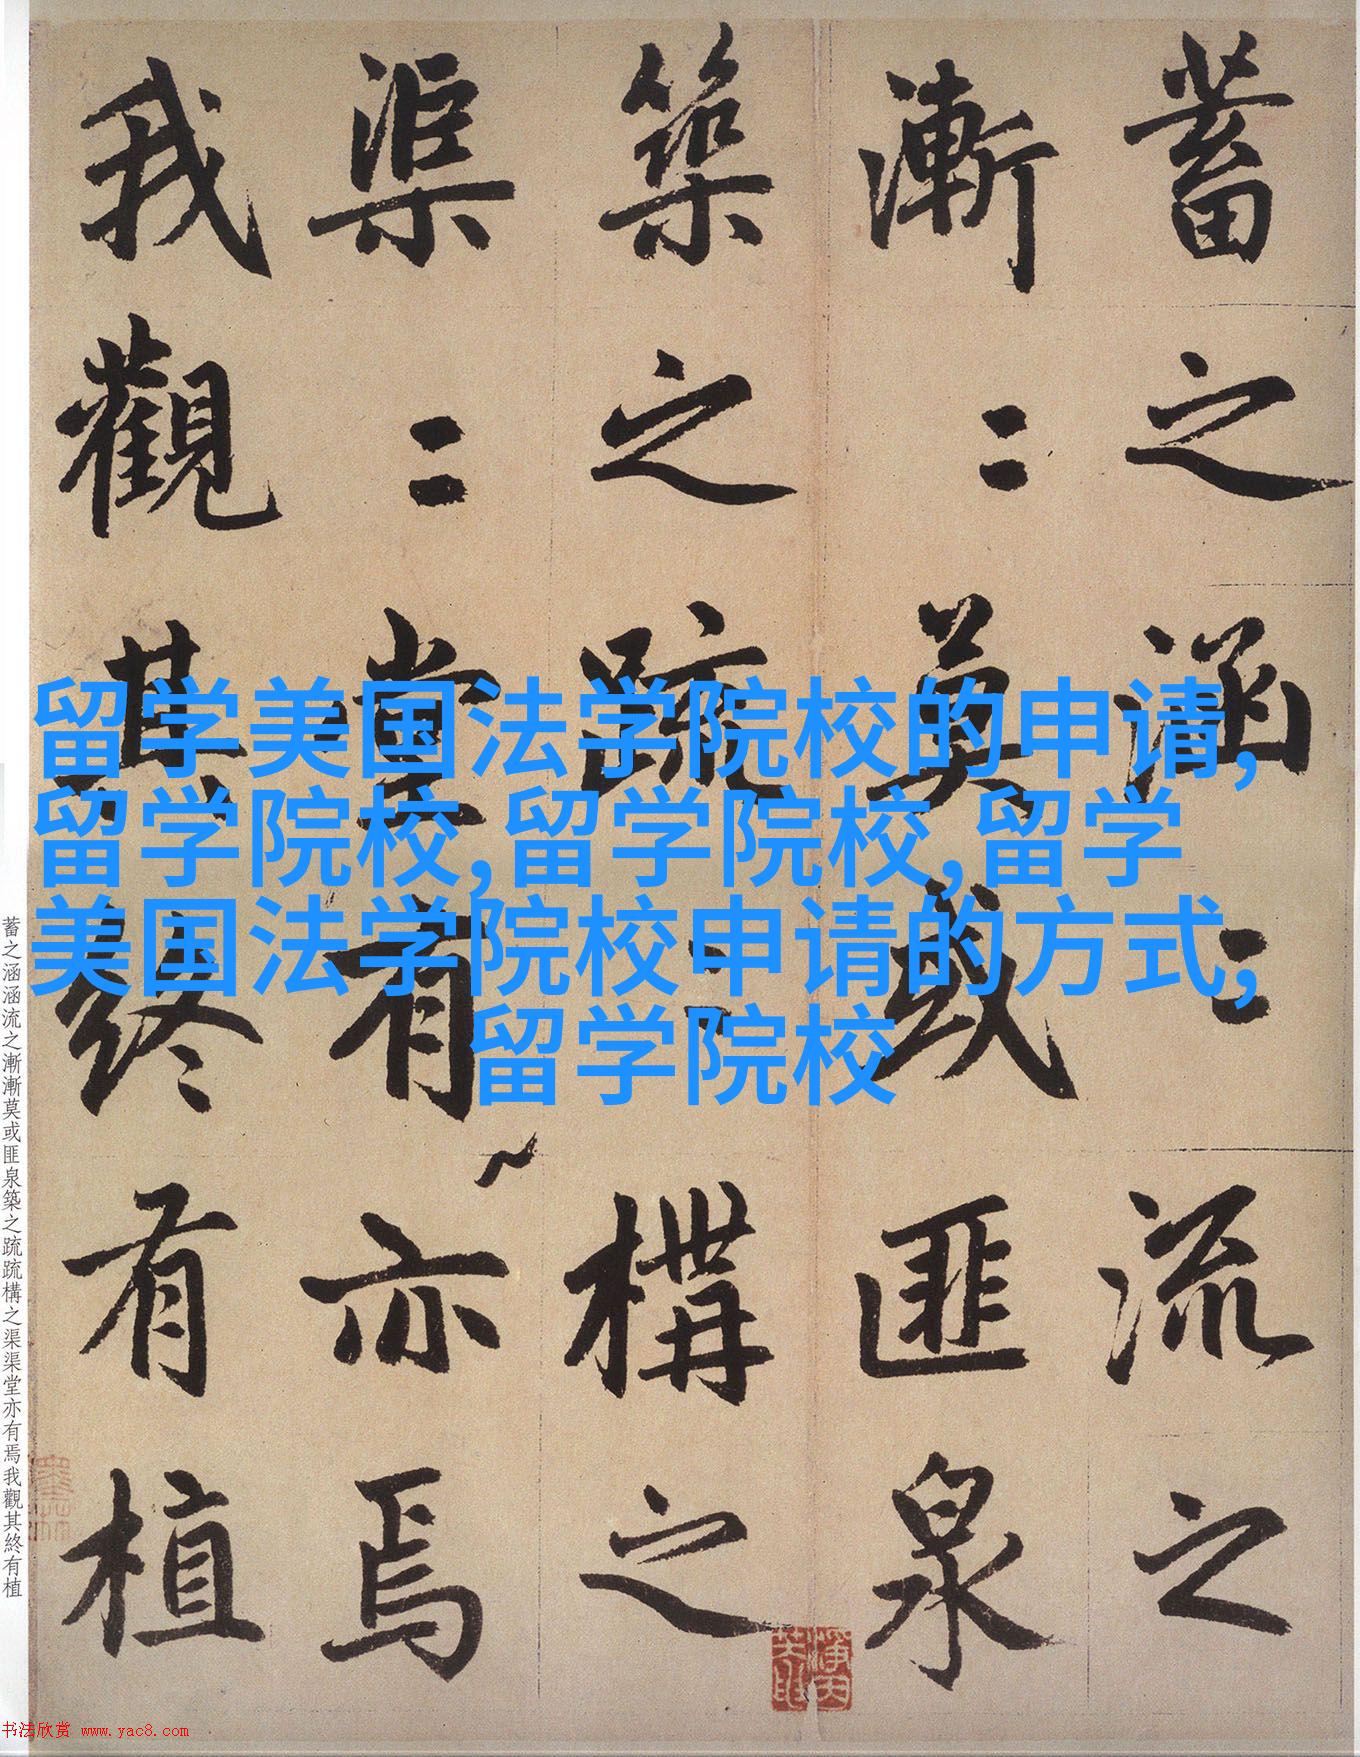 蓄之涵〻流之
漸〻莫或匪泉
築之疏〻構之
渠〻堂有亦焉
我觀其終有植
留学美国法学院校的申请,
留学院校,留学院校,留学
美国法学院校申请的方式,
留学院校
蓄之涵涵流之漸漸莫或匪泉築之疏疏構之渠渠堂亦有焉我觀其終有植
书法欣赏 www.yac8.com